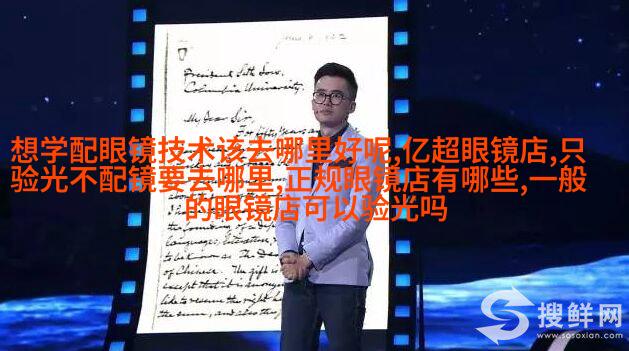 President Seth Low,
Columbia University.
My Dear Sir,
For fifty years and
想学配眼镜技术该去哪里好呢,亿超眼镜店,只
验光不配镜要去哪里,正规眼镜店有哪些,一般
的眼镜店可以验光吗
the founding of a dep
languages, literature,
to be known as The Dea
of Chinese. The gift is
except that it is anonym
like to reserve the right h
the sum, and also this,
搜鲜网
www.sosoxian.com